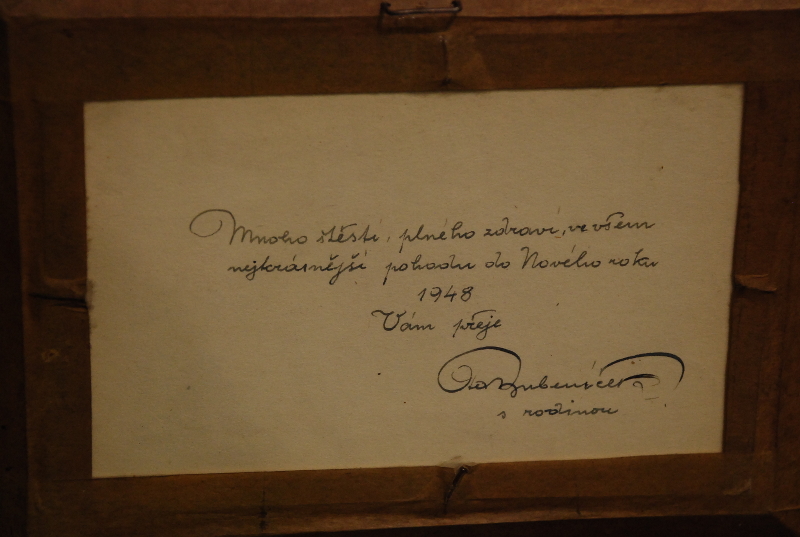 Mnoho štěstí, plného zdraví, ve všem
nejkrásnější pohodu do Nového roku
1948
Vám přeje
Ota Bubeníček
s rodinou